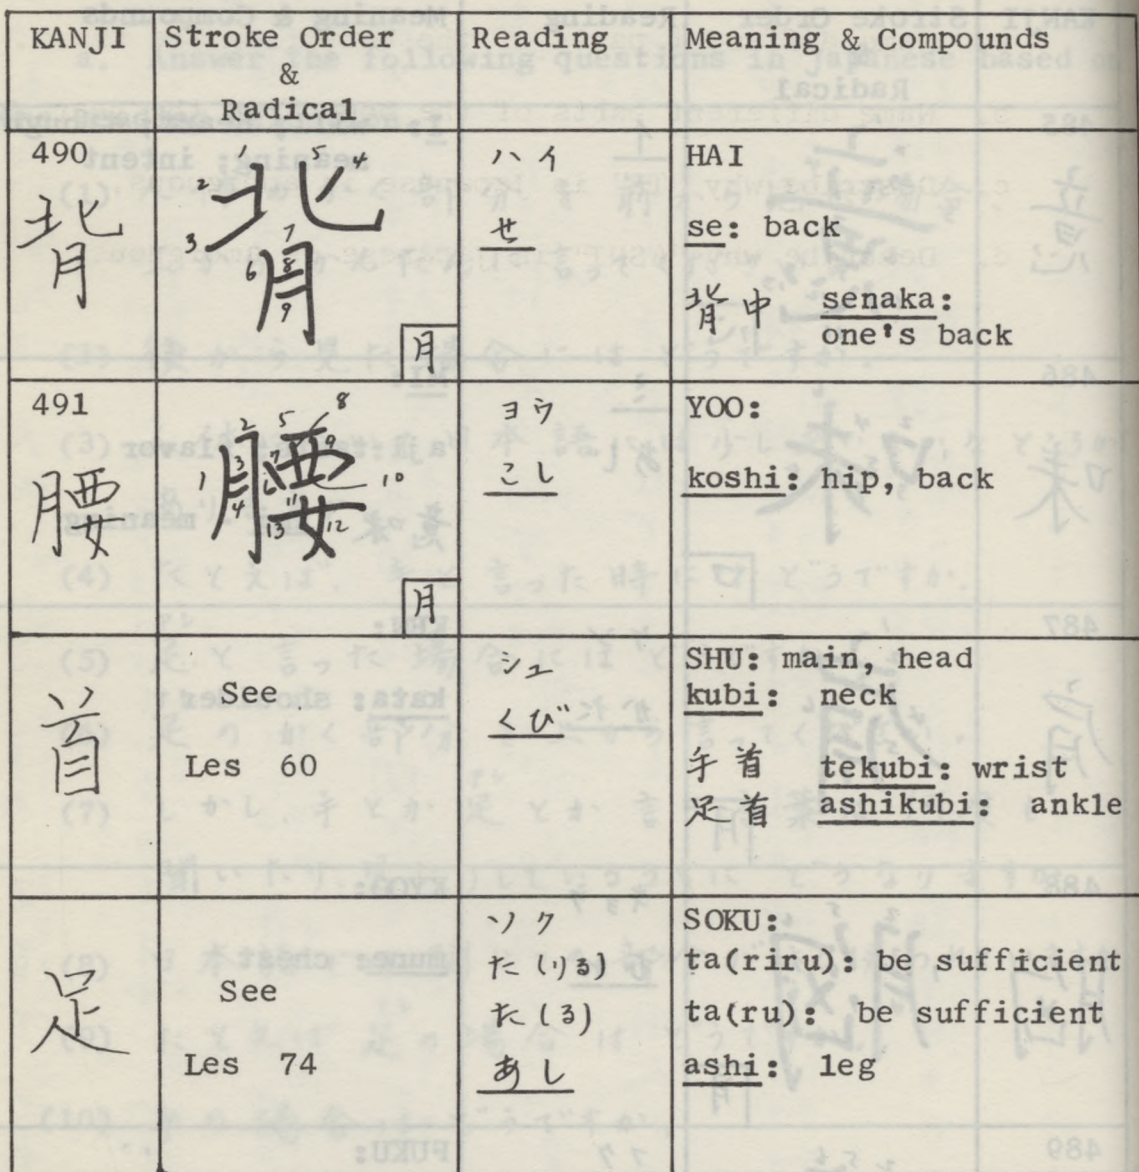 KANJI
Stroke Order
&
Radical
Reading
Meaning & Compounds
490
背
1 2 3 4 5 6 7 8 9
背
月
ハイ
せ
HAI
se: back
背中 senaka:
one's back
491
腰
1 2 3 4 5 6 7 8 9 10 11 12 13
腰
月
ヨウ
こし
YOO:
koshi: hip, back
首
See
Les 60
シュ
くび
SHU: main, head
kubi: neck
手首 tekubi: wrist
足首 ashikubi: ankle
足
See
Les 74
ソク
た(りる)
た(る)
あし
SOKU:
ta(riru): be sufficient
ta(ru): be sufficient
ashi: leg